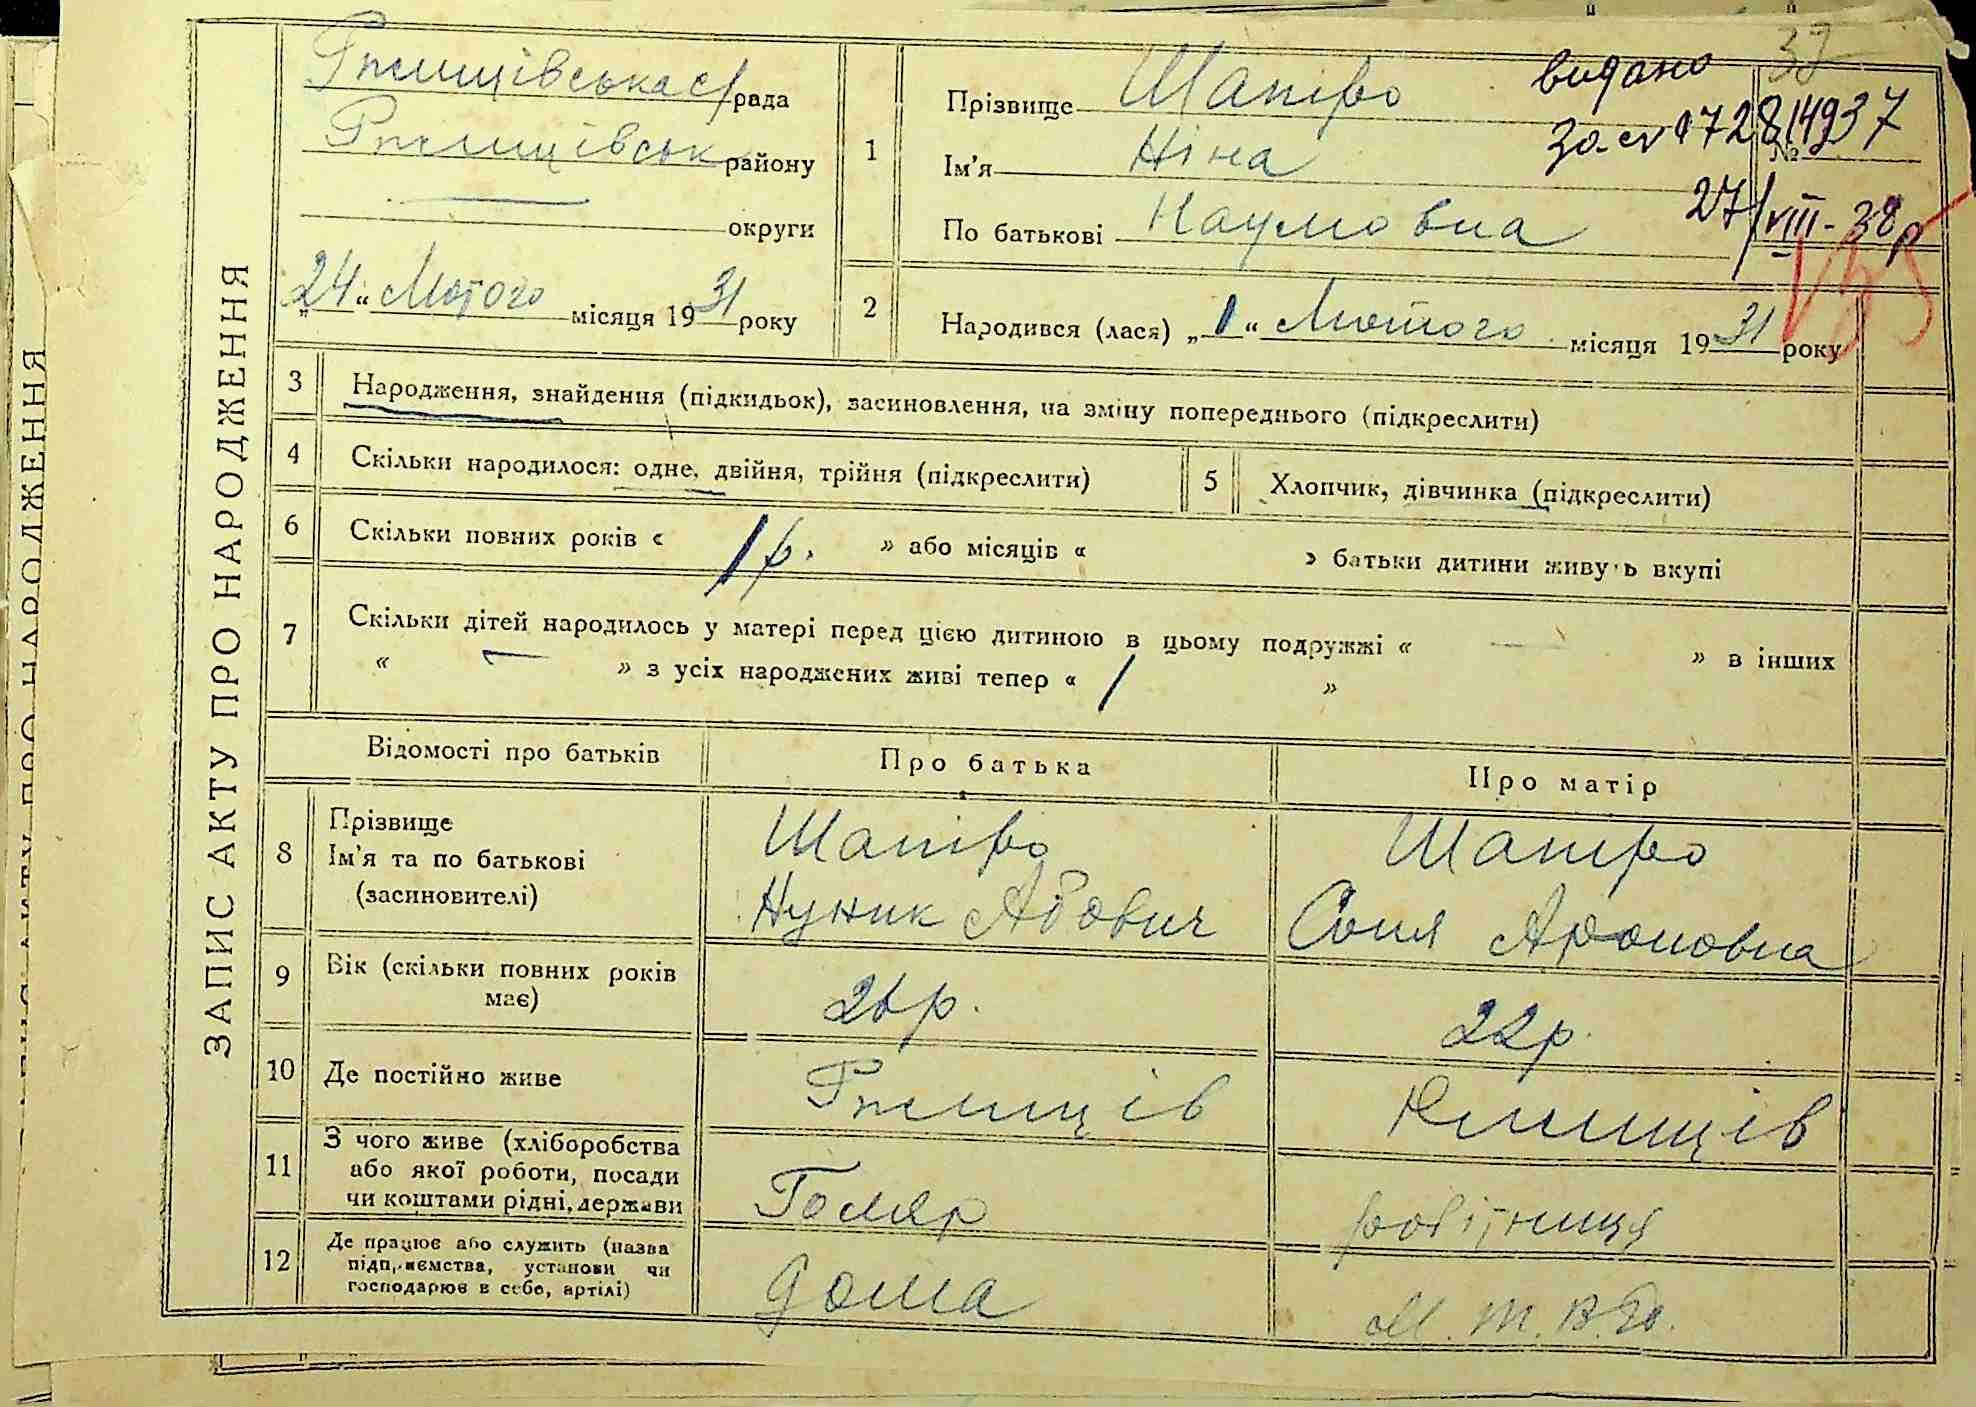 ЗАПИС АКТУ ПРО НАРОДЖЕННЯ
Ржищівська с/рада
Ржищівськ району
округи
„24“ Лютого місяця 1931 року
39
видано
за № 172814937
27/VIII-38р
1 Прізвище Шапіро
Ім'я Ніна
По батькові Наумовна
№
2 Народився (лася) „1“ Лютого місяця 1931 року
3 Народження, знайдення (підкидьок), засиновлення, на зміну попереднього (підкреслити)
4 Скільки народилося: одне, двійня, трійня (підкреслити) 5 Хлопчик, дівчинка (підкреслити)
6 Скільки повних років « 1 р. » або місяців « » батьки дитини живуть вкупі
7 Скільки дітей народилось у матері перед цією дитиною в цьому подружжі « — » в інших
« — » з усіх народжених живі тепер « 1 »
Відомості про батьків Про батька Про матір
8 Прізвище Шапіро Шапіро
Ім'я та по батькові Нуник Абович Соня Ароновна
(засиновителі)
9 Вік (скільки повних років має) 26р. 22р.
10 Де постійно живе Ржищів Ржищів
11 З чого живе (хліборобства
або якої роботи, посади
чи коштами рідні, держави Голяр робітниця
12 Де працює або служить (назва
підприємства, установи чи
господарює в себе, артілі) дома
ЗАПИС АКТУ ПРО НАРОДЖЕННЯ